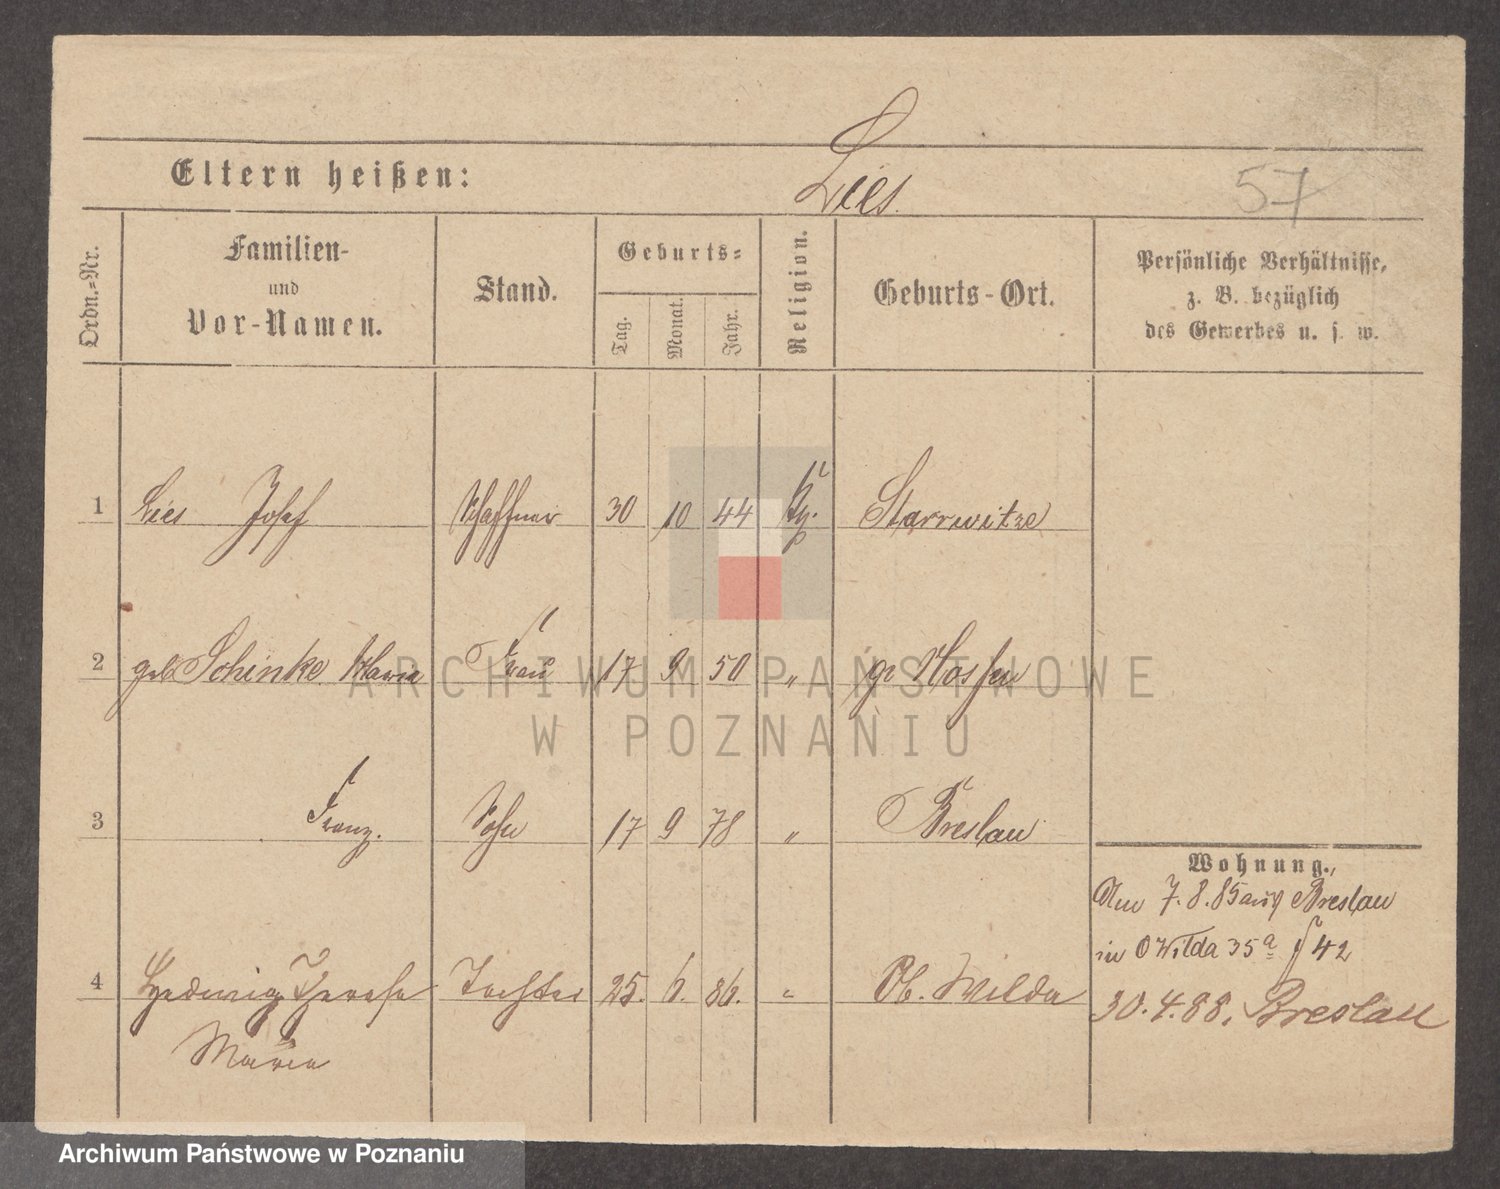 Eltern heißen:
Lies.
57
Ordn.-Nr.
Familien-
und
Vor-Namen.
Stand.
Geburts-
Tag.
Monat.
Jahr.
Religion.
Geburts-Ort.
Persönliche Verhältnisse,
z. B. bezüglich
des Gewerbes u. s. w.
1 Lies Josef Schaffner 30 10 44 Starrwitze
2 geb Schinke Maria Frau 17 9 50 "
ARCHIWUM PAŃSTWOWE
W POZNANIU
3 Franz. Sohn 17 9 78 " Breslau
Wohnung.
Am 7.8.85 aus Breslau
in O Wilda 35a § 42
4 Hedwig Therese Tochter 25. 6. 86. " Ob. Wilda
Maria
30.4.88. Breslau
Archiwum Państwowe w Poznaniu